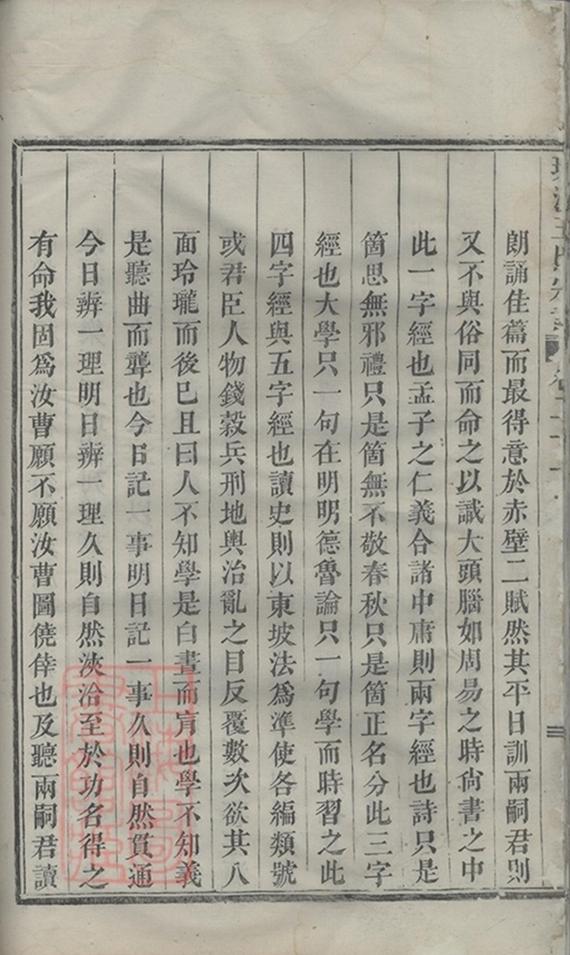 朗誦佳篇而最得意於赤壁二賦然其平日訓兩嗣君則
又不與俗同而命之以識大頭腦如周易之時尙書之中
此一字經也孟子之仁義合諸中庸則兩字經也詩只是
箇思無邪禮只是箇無不敬春秋只是箇正名分此三字
經也大學只一句在明明德魯論只一句學而時習之此
四字經與五字經也讀史則以東坡法爲準使各編類號
或君臣人物錢穀兵刑地輿治亂之目反覆數次欲其八
面玲瓏而後已且曰人不知學是白晝而肓也學不知義
是聽曲而聾也今日記一事明日記一事久則自然貫通
今日辨一理明日辨一理久則自然浹洽至於功名得之
有命我固爲汝曹願不願汝曹圖僥倖也及聽兩嗣君讀